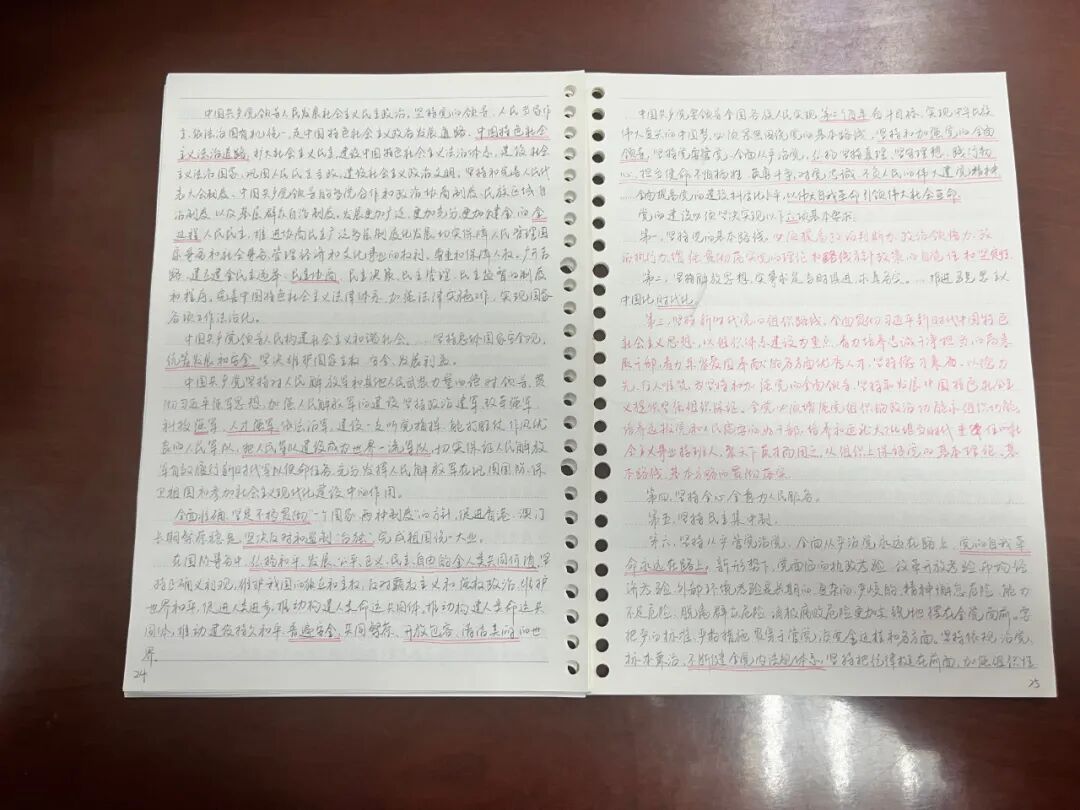 中国共产党领导人民发展社会主义民主政治。坚持党的领导、人民当家作
主、依法治国有机统一,走中国特色社会主义政治发展道路、中国特色社会
主义法治道路,扩大社会主义民主,建设中国特色社会主义法治体系,建设社会
主义法治国家,巩固人民民主专政,建设社会主义政治文明。坚持和完善人民代
表大会制度、中国共产党领导的多党合作和政治协商制度、民族区域自
治制度以及基层群众自治制度。发展更加广泛、更加充分、更加健全的全
过程人民民主,推进协商民主广泛多层制度化发展,切实保障人民管理国
家事务和社会事务、管理经济和文化事业的权利。尊重和保障人权。广开言
路,建立健全民主选举、民主协商、民主决策、民主管理、民主监督的制度
和程序。完善中国特色社会主义法律体系,加强法律实施工作,实现国家
各项工作法治化。
中国共产党领导人民构建社会主义和谐社会。……坚持总体国家安全观,
统筹发展和安全,坚决维护国家主权、安全、发展利益。
中国共产党坚持对人民解放军和其他人民武装力量的绝对领导,贯
彻习近平强军思想,加强人民解放军的建设,坚持政治建军、改革强军、
科技强军、人才强军、依法治军,建设一支听党指挥、能打胜仗、作风优
良的人民军队,把人民军队建设成为世界一流军队,切实保证人民解放
军有效履行新时代军队使命任务,充分发挥人民解放军在巩固国防、保
卫祖国和参加社会主义现代化建设中的作用。
全面准确、坚定不移贯彻"一个国家、两种制度"的方针,促进香港、澳门
长期繁荣稳定,坚决反对和遏制"台独",完成祖国统一大业。
在国际事务中,弘扬和平、发展、公平、正义、民主、自由的全人类共同价值,坚
持正确义利观,维护我国的独立和主权,反对霸权主义和强权政治,维护
世界和平,促进人类进步,推动构建人类命运共同体,推动构建人类命运共
同体,推动建设持久和平、普遍安全、共同繁荣、开放包容、清洁美丽的世
界。
24
中国共产党要领导全国各族人民实现第二个百年奋斗目标、实现中华民族
伟大复兴的中国梦,必须紧密围绕党的基本路线,坚持和加强党的全面
领导,坚持党要管党、全面从严治党,弘扬坚持真理、坚守理想,践行初
心、担当使命,不怕牺牲、英勇斗争,对党忠诚、不负人民的伟大建党精神
全面提高党的建设科学化水平,以伟大自我革命引领伟大社会革命
党的建设必须坚决实现以下六项基本要求:
第一,坚持党的基本路线。必须提高政治判断力、政治领悟力、政
治执行力,增强贯彻落实党的理论和路线方针政策的自觉性和坚定性。
第二,坚持解放思想,实事求是,与时俱进,求真务实。……推进马克思主义
中国化时代化。
第三,坚持新时代党的组织路线。全面贯彻习近平新时代中国特色
社会主义思想,以组织体系建设为重点,着力培养忠诚干净担当的高素
质干部,着力集聚爱国奉献的各方面优秀人才,坚持德才兼备、以德为
先、任人唯贤,为坚持和加强党的全面领导、坚持和发展中国特色社会主
义提供坚强组织保证。全党必须增强党组织的政治功能和组织功能,
培养选拔党和人民需要的好干部,培养和造就大批堪当时代重任的社
会主义事业接班人,聚天下英才而用之,从组织上保证党的基本理论、基
本路线、基本方略的贯彻落实。
第四,坚持全心全意为人民服务。
第五,坚持民主集中制。
第六,坚持从严管党治党。全面从严治党永远在路上,党的自我革
命永远在路上。新形势下,党面临的执政考验、改革开放考验、市场经
济考验、外部环境考验是长期的、复杂的、严峻的,精神懈怠危险、能力
不足危险、脱离群众危险、消极腐败危险更加尖锐地摆在全党面前。要
把严的标准、严的措施贯穿于管党治党全过程和各方面。坚持依规治党、
标本兼治,不断健全党内法规体系,坚持把纪律挺在前面,加强组织性
25